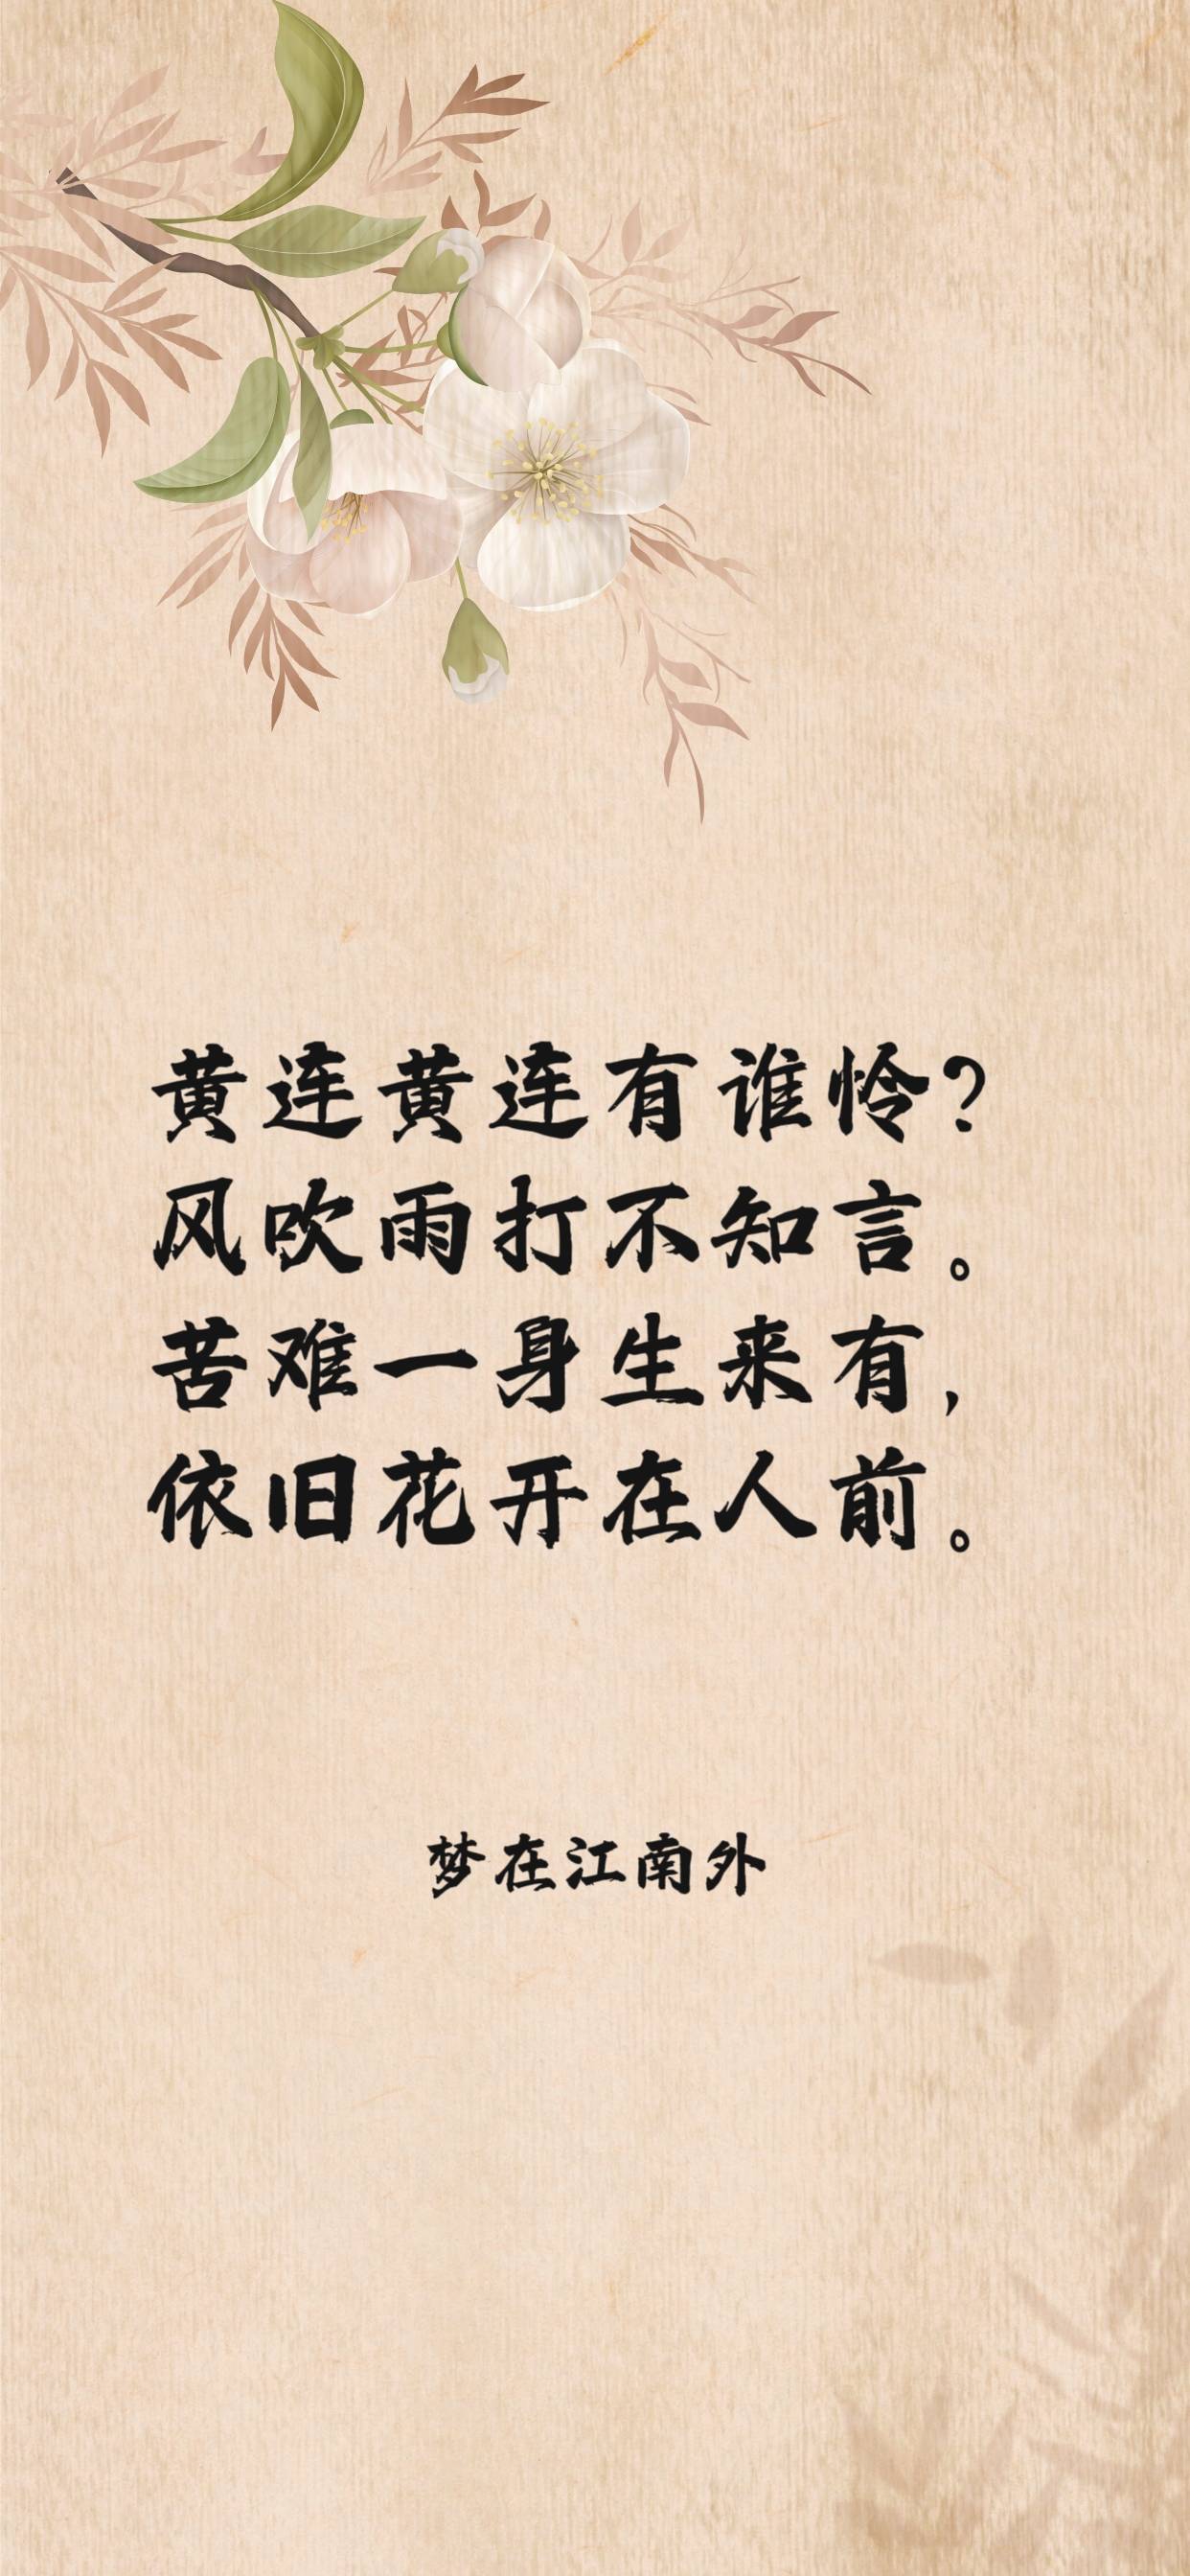 黄连黄连有谁怜？
风吹雨打不知言。
苦难一身生来有，
依旧花开在人前。
梦在江南外